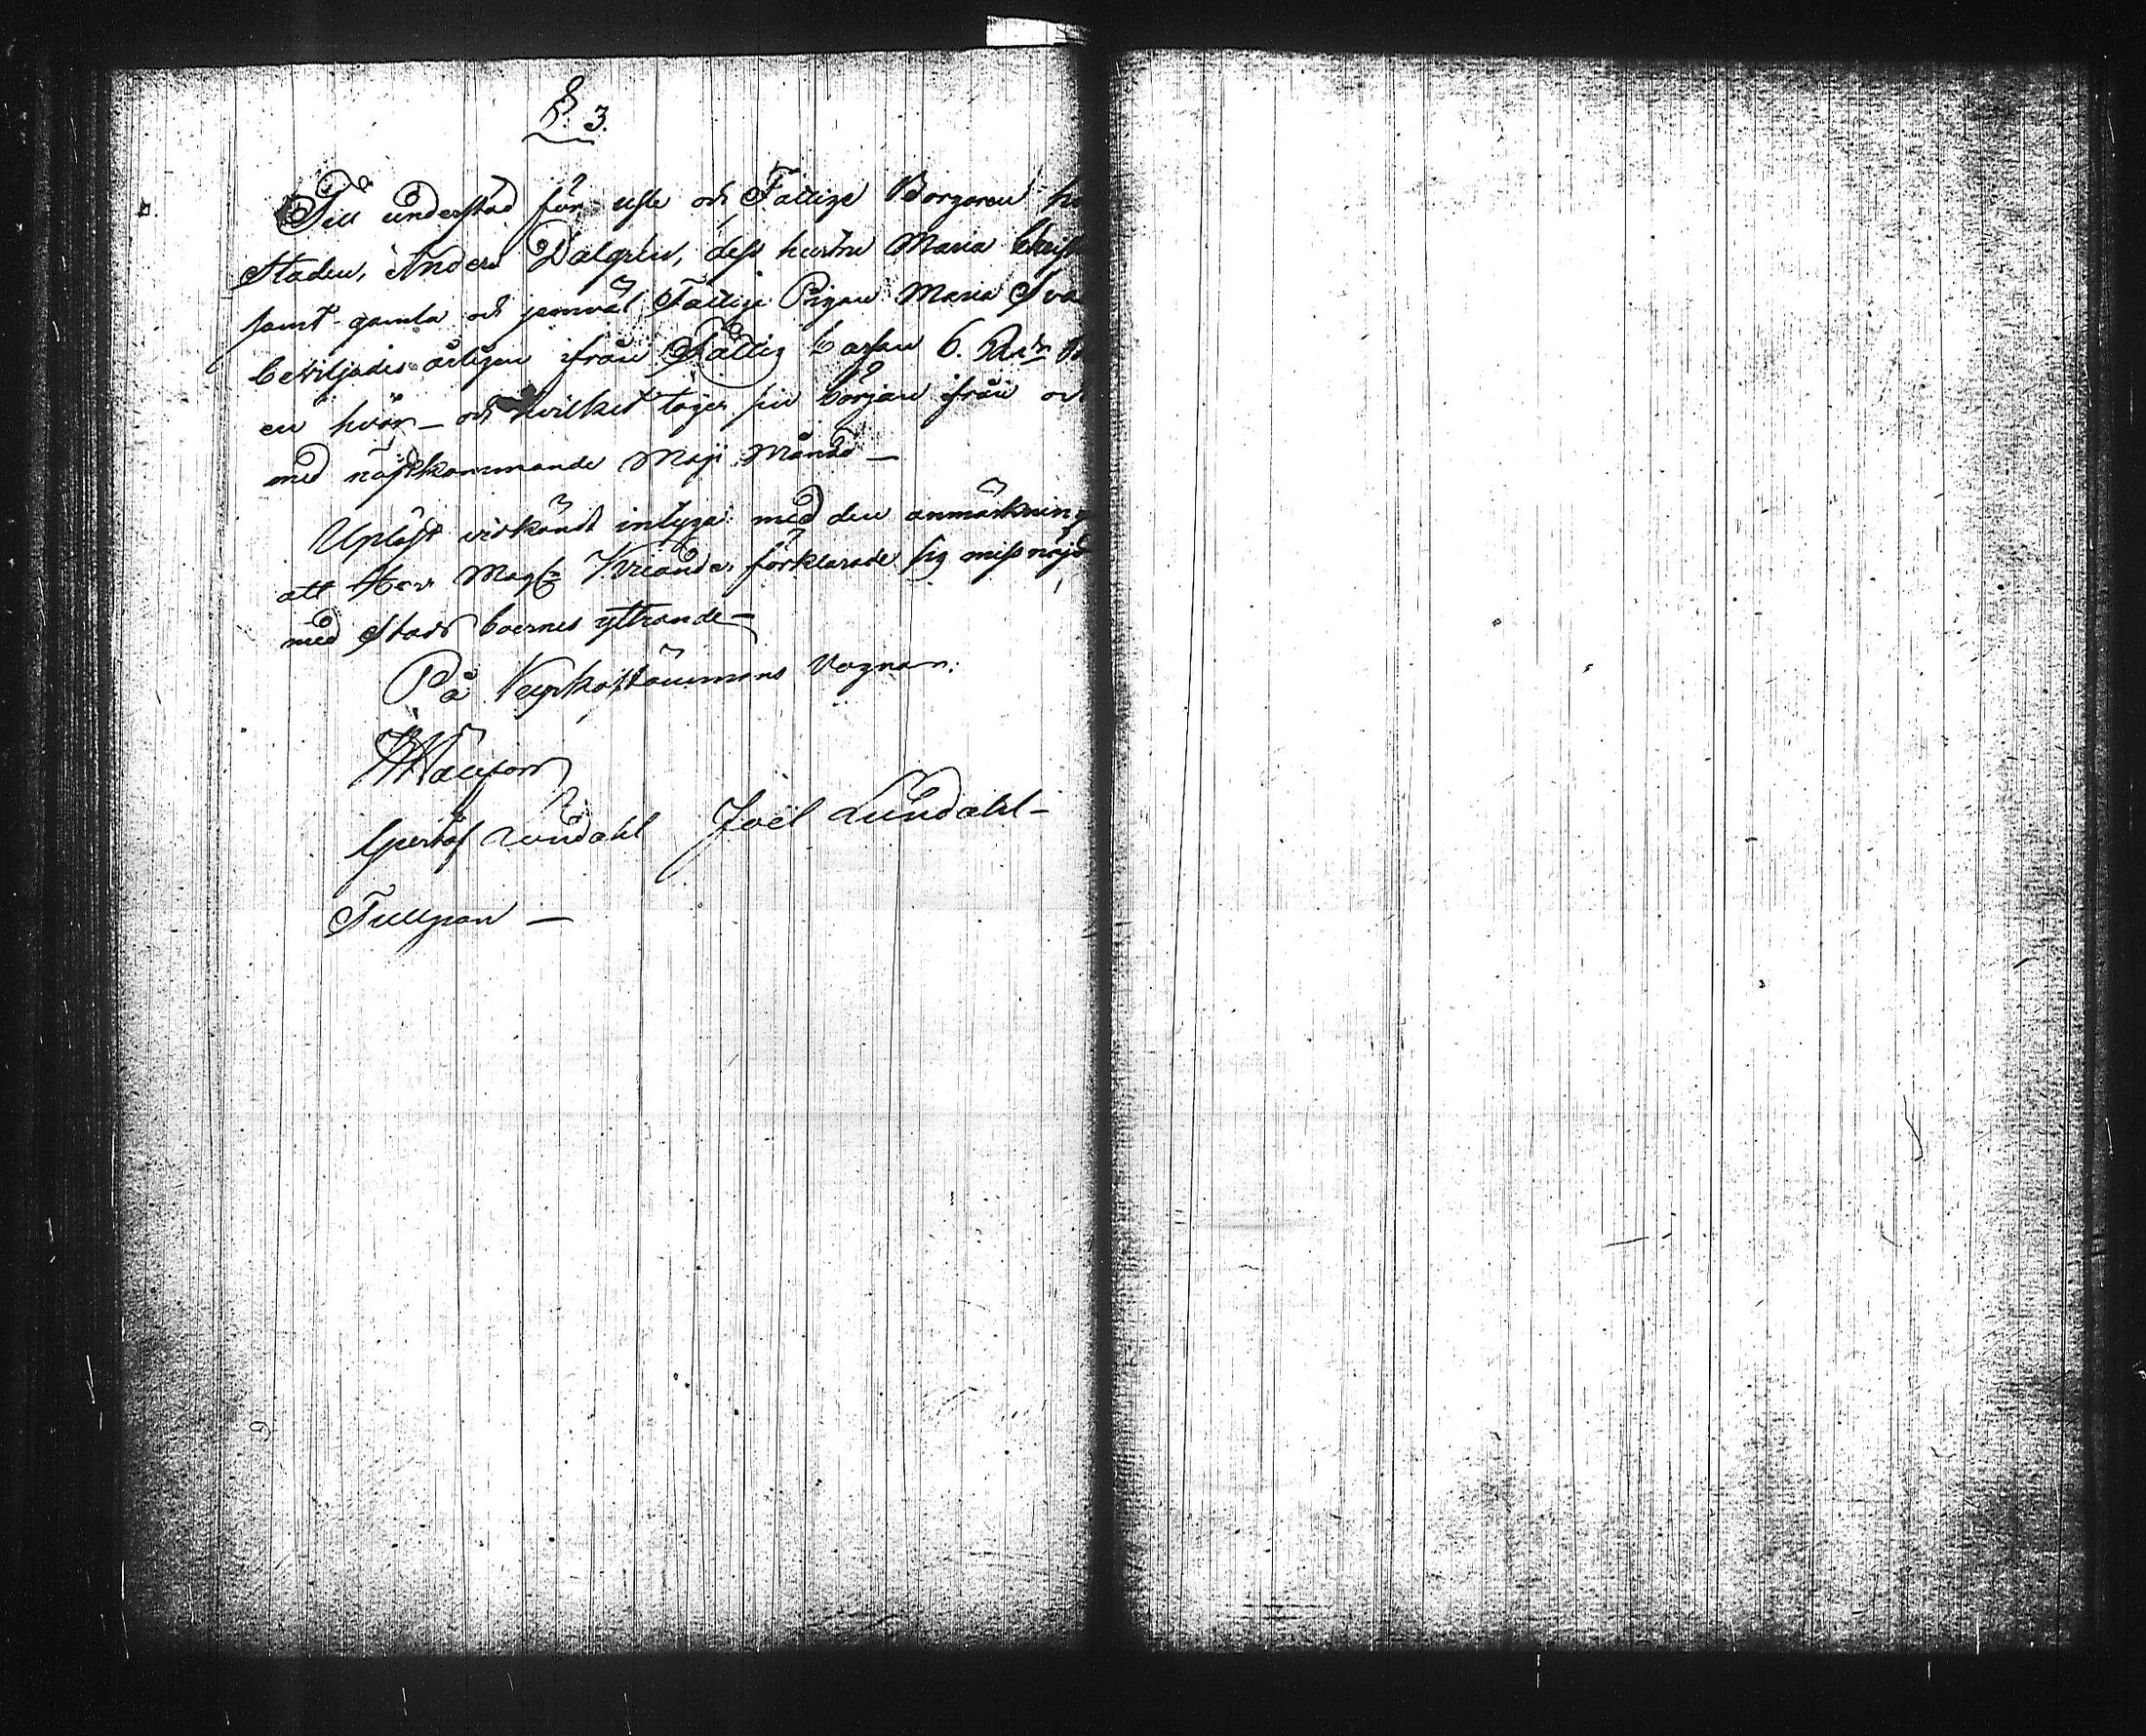 §. 3.
Till understöd för usle och Fattige Borgaren
Staden, Anders Dalgren, dess hustru Maria
samt gamla och jemväl Fattige Pigan Maria
beviljades årligen ifrån Fattig Cassan 6. Rdr
en hvar – och hvilket tager sin början ifrån och
med nästkommande Maji Månad –
Upläst vidkändt intyga med den anmärkning
att Herr förklarade sig missnöjd
med Stads boernes yttrande –
På Kyrkostämmans vagnar.
Gustaf Lundahl Joël Lundahl –